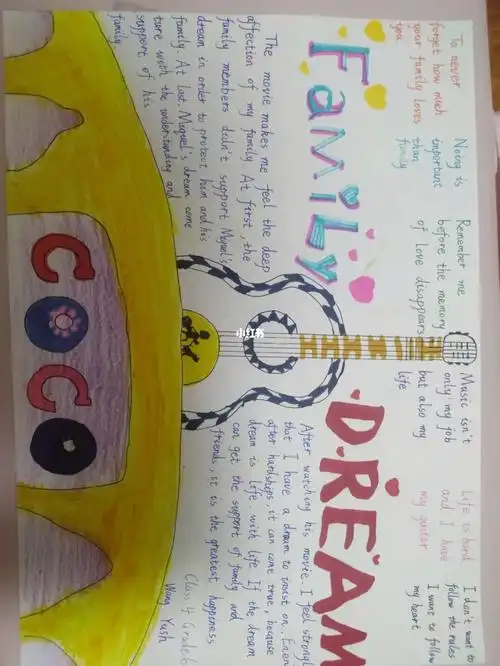 To never
forget how much
your family loves
you
Noing is
important
than
family
Remember me
before the memory
of love disappears
Music isn't
only my job
but also my
life
Life is hard
and I have
my guitar
I don't want to
follow the rules
I want to follow
my heart
FAMiLy
DREAM
The movie makes me feel the deep
affection of my family. At first, the
family members didn't support Miguel's
dream in order to protect him and his
family. At last. Miguel's dream come
ture with the understanding and
support of his
family
After watching his movie. I feel strongl
that I have a dream to insist on. Even
after hardships, it can come true, because
dream is life. with life If the dream
can get the support of family and
friends, it is the greatest happiness
Class 4 Grade 6
Wang Yush
小红书
COCO